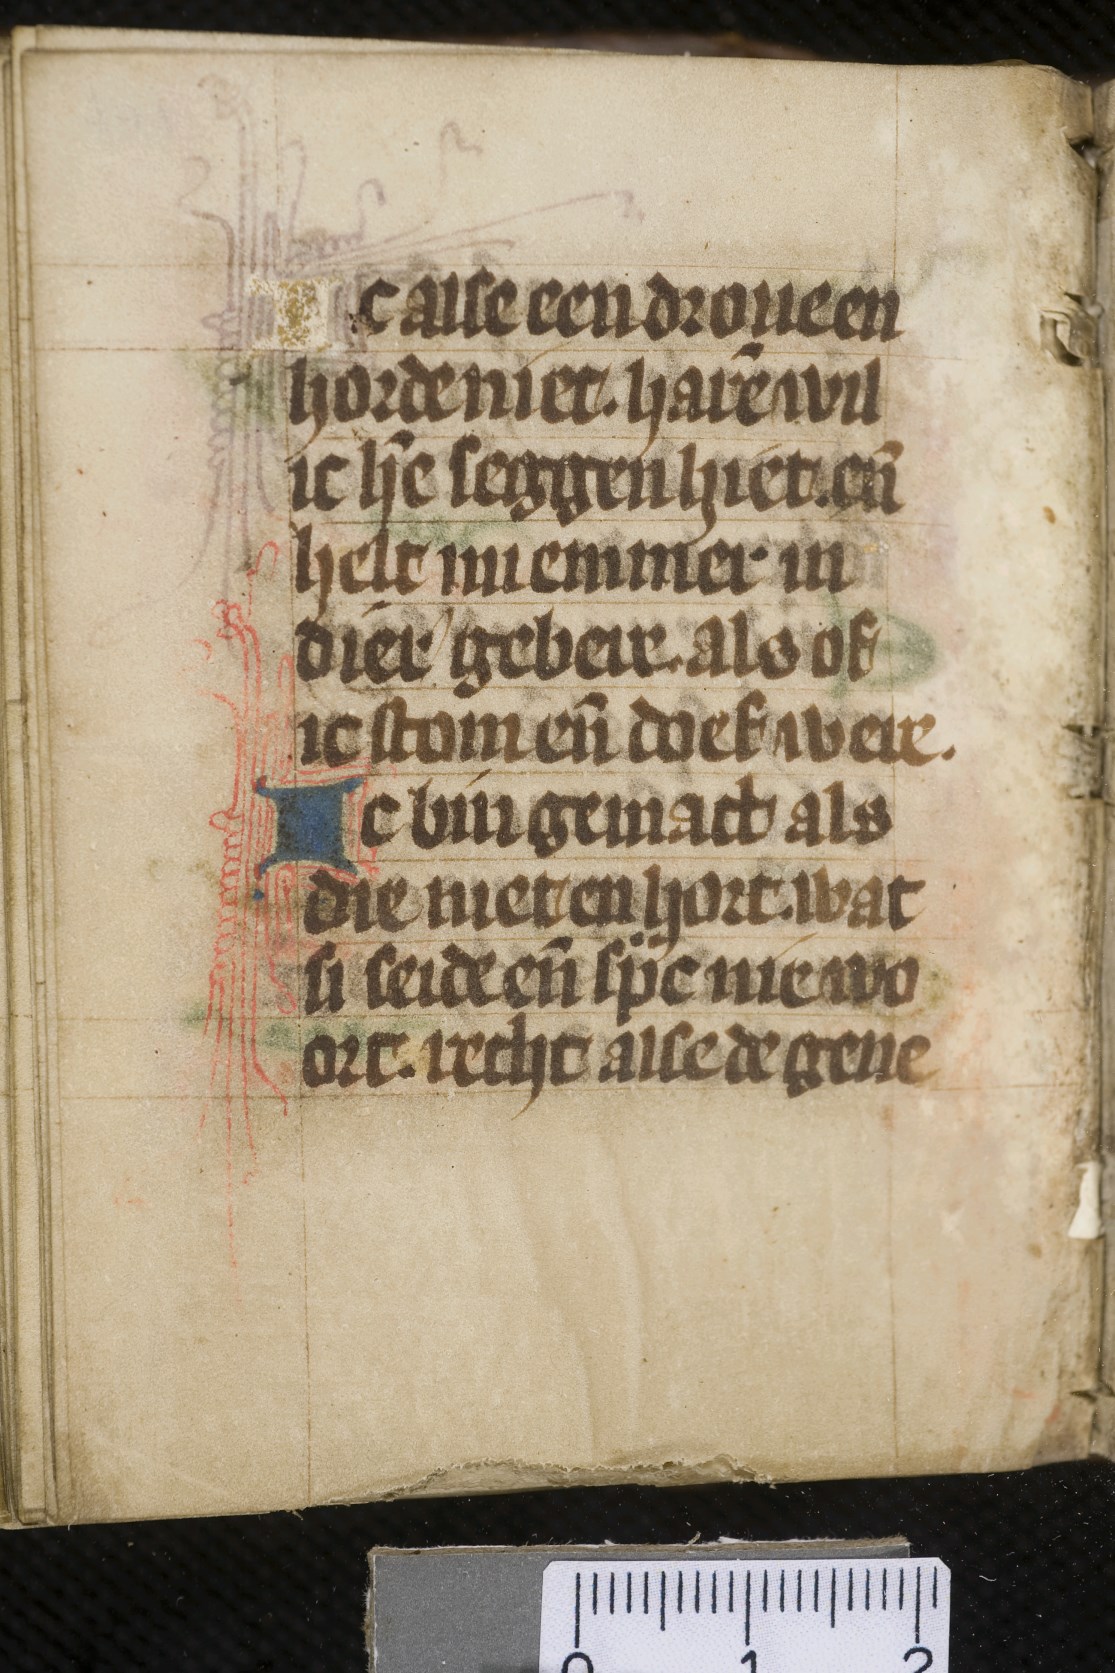 Ic alse een droue en
horde niet. harē wil
ic h̄e seggen hiet. eñ
helt mi emmer in
dier gebere. als of
ic stom eñ doef were.
Ic bin gemact als
die niet en hort. wat
si seide eñ sp̄c nie wo
ort. recht alse de gene
0 1 2